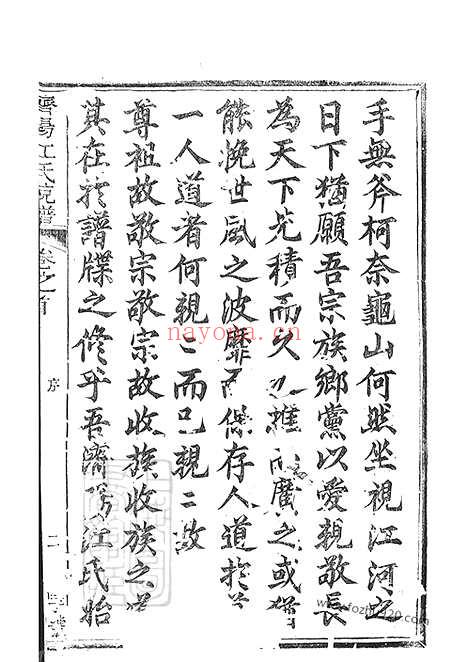 手無斧柯奈龜山何然坐視江河之
日下猶願吾宗族鄉黨以愛親敬長
為天下先積而久之推而廣之或猶
能挽世風之波靡而保存人道於
一人道者何親二而已親二故
尊祖故敬宗敬宗故收族收族之道
其在於譜牒之修乎吾濟陽江氏始
濟陽江氏宗譜
卷之首
序
二
nayona.cn